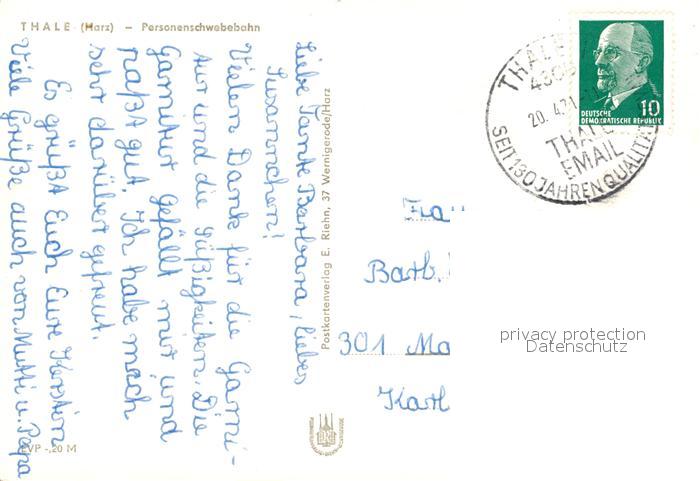 THALE (Harz) – Personenschwebebahn
Liebe Tante Barbara, liebes
Susannchen!
Vielen Dank für die Garni-
tur und die Süßigkeiten. Die
Garnitur gefällt mir und
paßt gut. Ich habe mich
sehr darüber gefreut.
Es grüßt Euch Eure Kerstin
Viele Grüße auch von Mutti u. Papa
EVP -,20 M
Postkartenverlag E. Riehn, 37 Wernigerode/Harz
THALE
20. 4.71
THALE
EMAIL
SEIT 130 JAHREN QUALITÄT
10
DEUTSCHE
DEMOKRATISCHE REPUBLIK
Fra
Barb.
301 Ma
Karl
privacy protection
Datenschutz